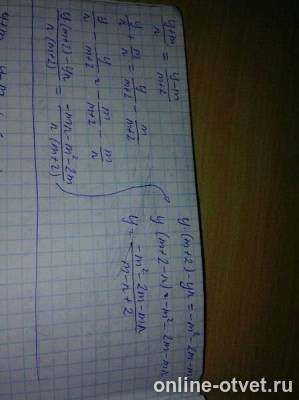 (y+m)/n = (y-m)/(m+2)
y/n + m/n = y/(m+2) - m/(m+2)
y/n - y/(m+2) = - m/(m+2) - m/n
(y(m+2)-yn)/(n(m+2)) = (-mn-m²-2m)/(n(m+2))
y(m+2)-yn = -m²-2m-m
y(m+2-n) = -m²-2m-mn
y = (-m²-2m-mn)/(m-n+2)
online-otvet.ru